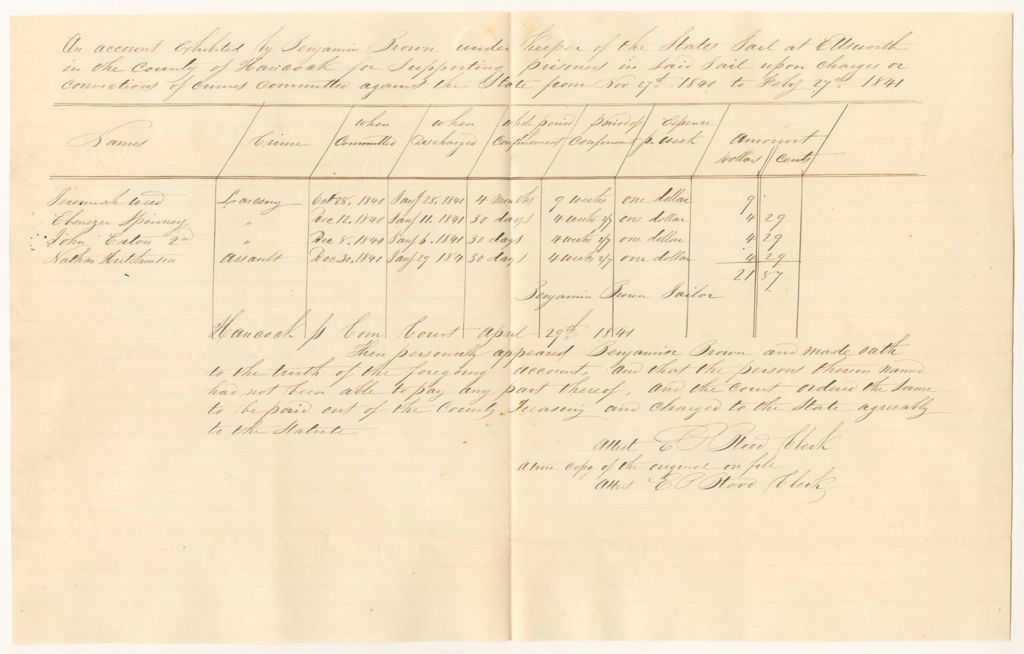 An account exhibited by Benjamin Brown under keeper of the States Jail at Ellsworth
in the County of Hancock for Supporting prisoners in Said Jail upon charges or
convictions of crimes committed against the State from Nov 27th 1840 to Feby 27th 1841
Names Crime when Committed when discharged whole period confinement period of Confinement Expence pr week amount
Dollars Cents
Jeremiah Weed Larceny Oct 28, 1840 Jany 28, 1841 4 months 9 weeks one dollar 9
Ebenezer Spinney " Dec 12, 1840 Jany 11. 1841 30 days 4 weeks 2/7 one dollar 4 29
John Eaton 2d " Dec 8, 1840 Jany 6. 1841 30 days 4 weeks 2/7 one dollar 4 29
Nathan Hutchinson assault Dec 30, 1840 Jany 29 184 30 days 4 weeks 2/7 one dollar 4 29
21 87
Benjamin Brown Jailor
Hancock ss Com Court April 29th 1841
Then personally appeared Benjamin Brown and made oath
to the truth of the foregoing account, and that the persons therein named
had not been able to pay any part thereof, and the Court ordered the Same
to be paid out of the County Treasury and charged to the State agreeably
to the Statute
Attest E P Hood Clerk
A true Copy of the original on file
Attest E P Hood Clerk